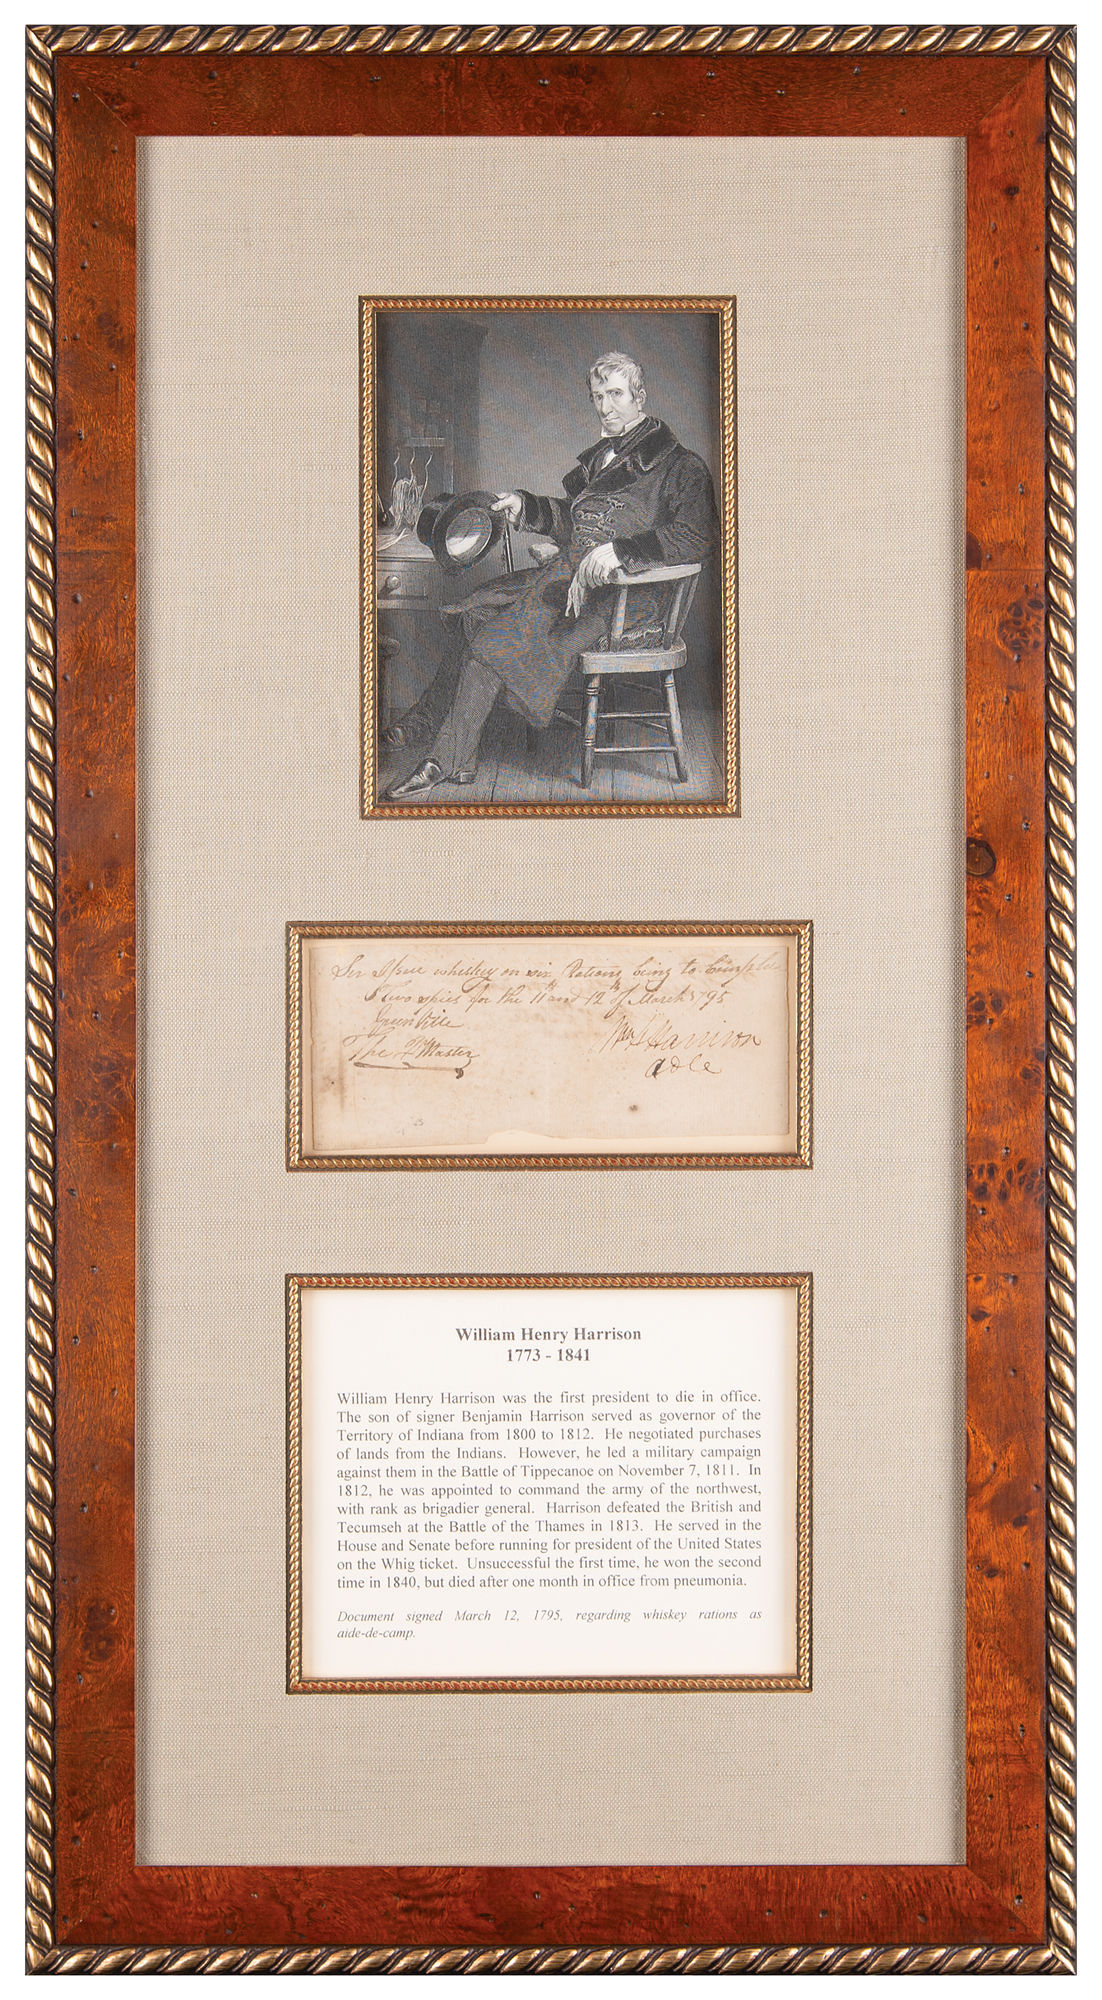 Sir Issue whiskey on six Rations being to
Two spies for the 11th and 12th of March 1795
Greenville
The Qr Master
Wm H Harrison
adce
William Henry Harrison
1773 - 1841
William Henry Harrison was the first president to die in office.
The son of signer Benjamin Harrison served as governor of the
Territory of Indiana from 1800 to 1812. He negotiated purchases
of lands from the Indians. However, he led a military campaign
against them in the Battle of Tippecanoe on November 7, 1811. In
1812, he was appointed to command the army of the northwest,
with rank as brigadier general. Harrison defeated the British and
Tecumseh at the Battle of the Thames in 1813. He served in the
House and Senate before running for president of the United States
on the Whig ticket. Unsuccessful the first time, he won the second
time in 1840, but died after one month in office from pneumonia.
Document signed March 12, 1795, regarding whiskey rations as
aide-de-camp.